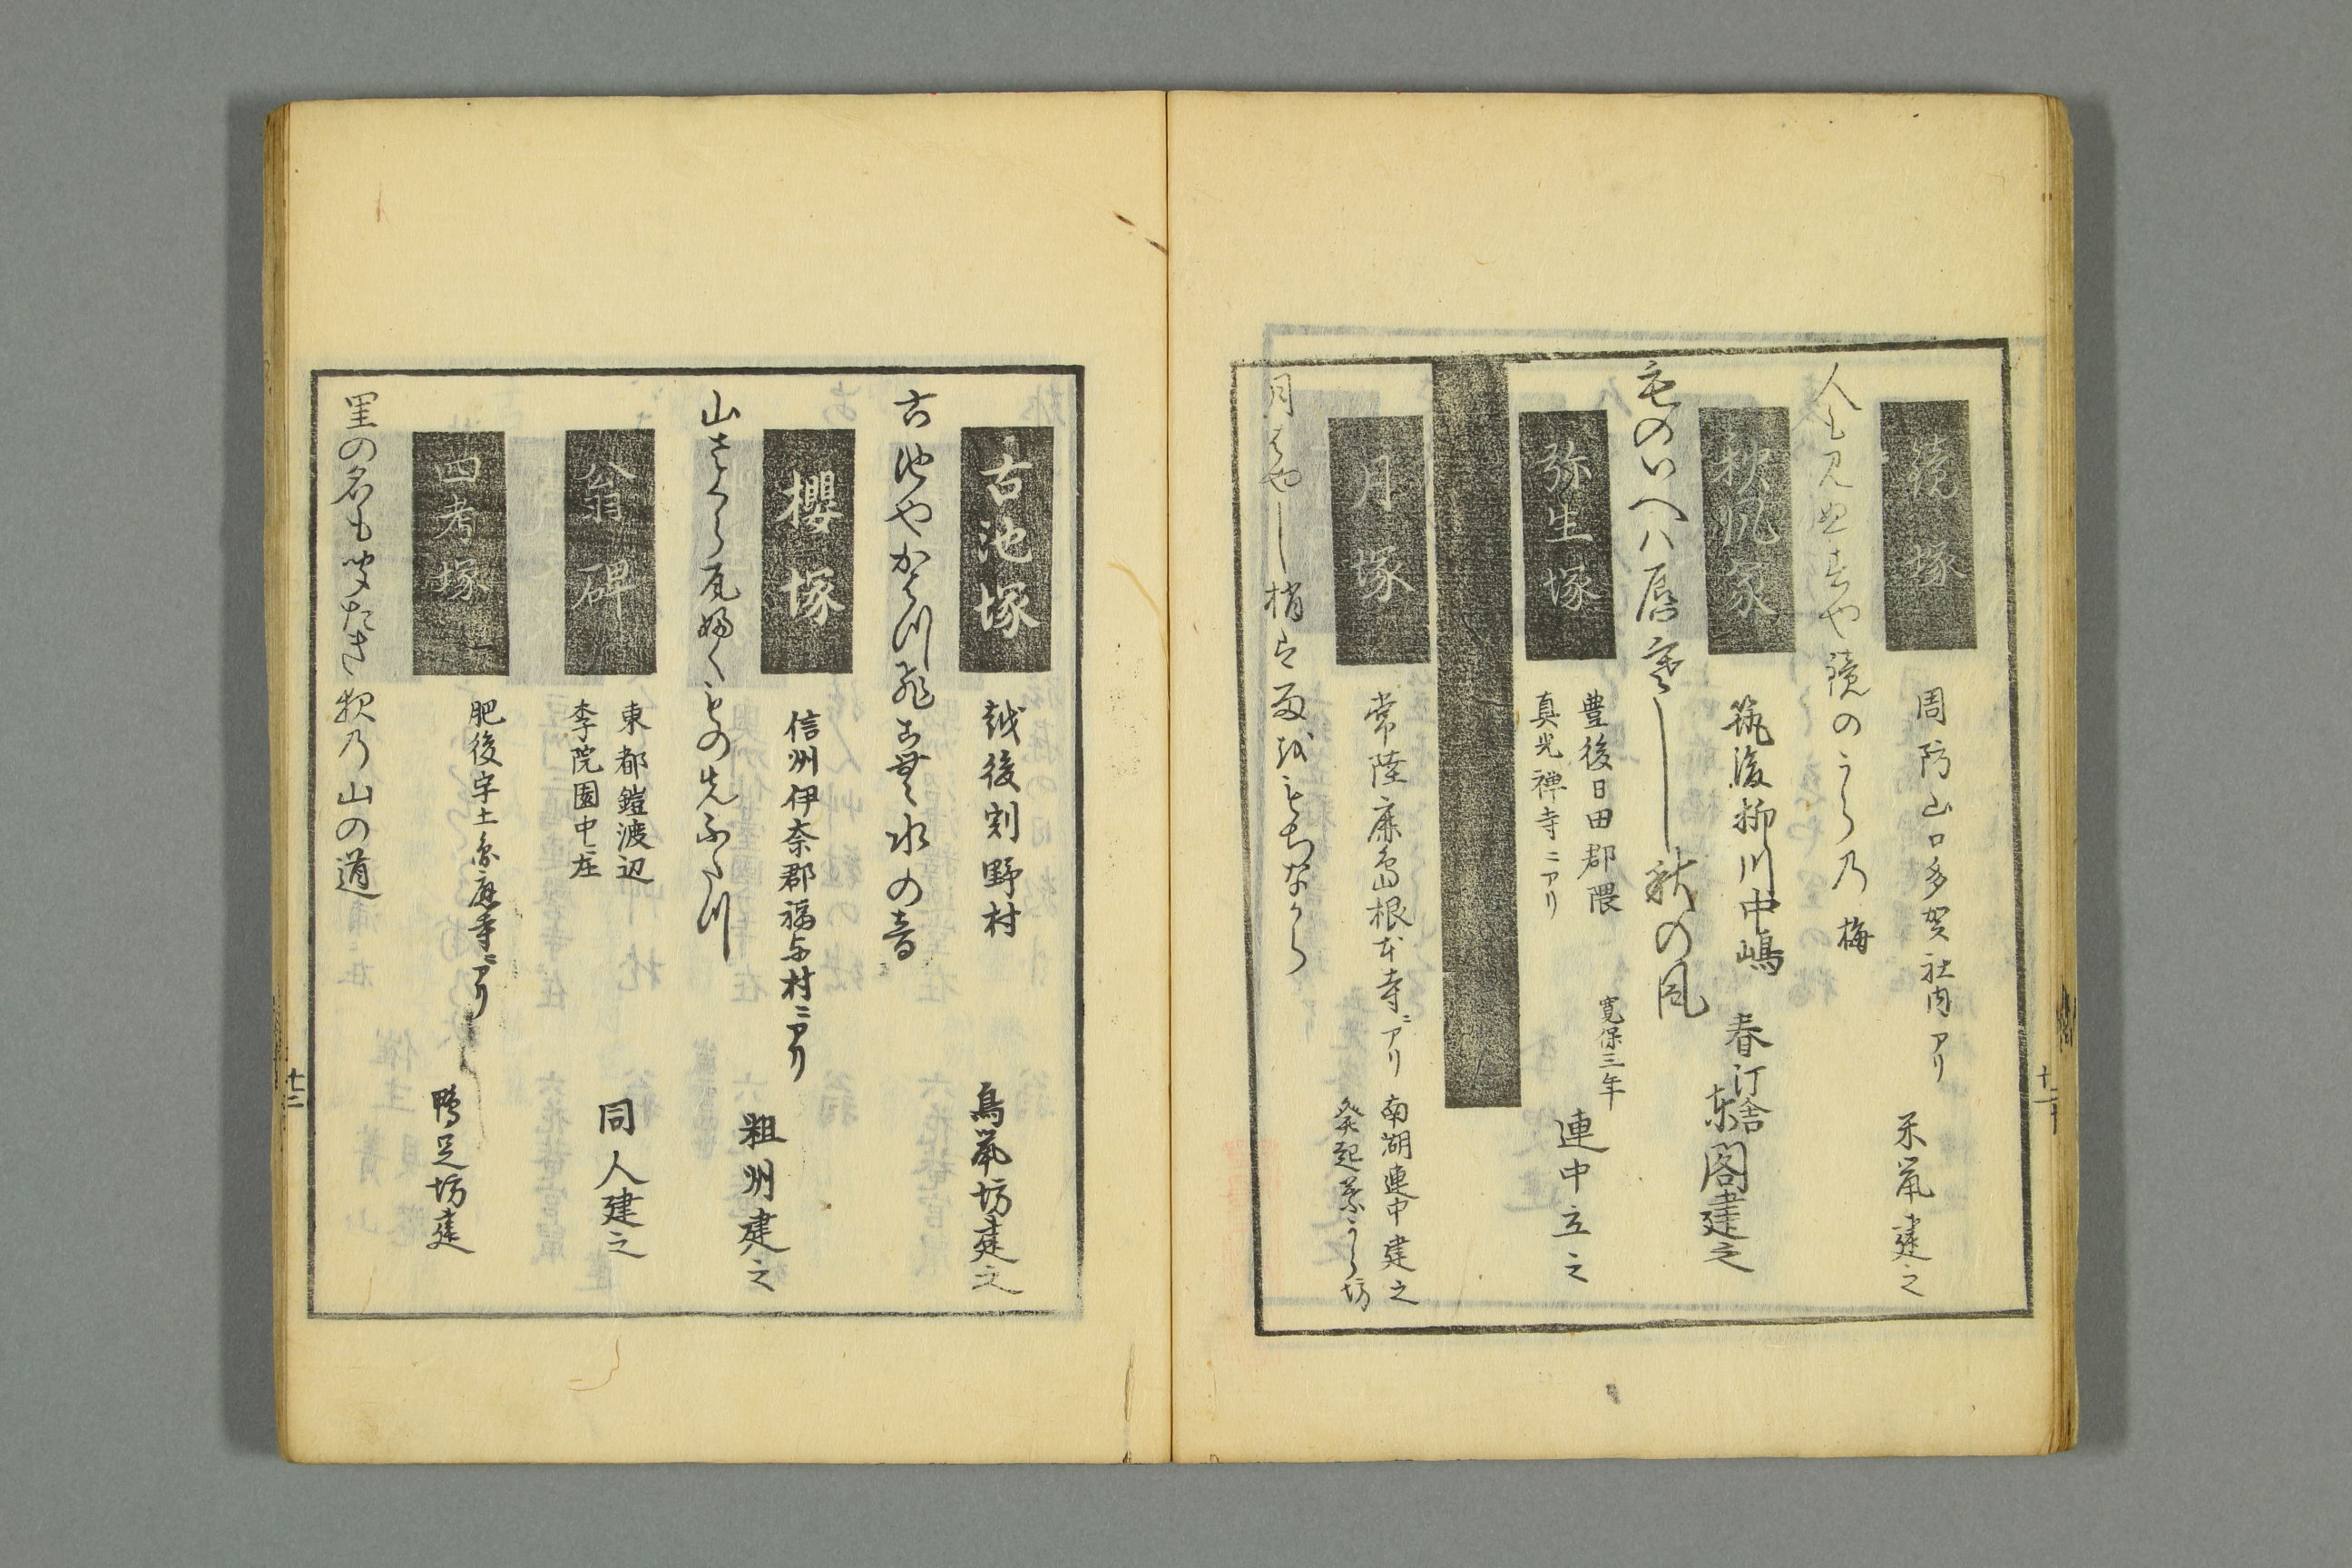 鏡塚
周防山口多賀社内アリ
禾葉建之
人も見ぬ春や鏡のうらの梅
秋風冢
筑後柳川中嶋
春汀舎
東閣建之
毛のいへハ唇寒し秋の風
弥生塚
豊後日田郡隈
真光禅寺ニアリ
寛保三年
連中立之
月塚
常陸鹿島根本寺ニアリ
南湖連中建之
発起茶うら坊
月はやし梢は雨をもちながら
十一
古池塚
越後剣野村
鳥巣坊建之
古池やかはつ飛こむ水の音
櫻塚
信州伊奈郡福与村ニアリ
粗州建之
山さくら瓦ふくもの先ふたつ
翁碑
東都鎧渡辺
李院園中ニ在
同人建之
四考塚
肥後宇土 寺ニアリ
鴨足坊建
里の名も 山の道
十二